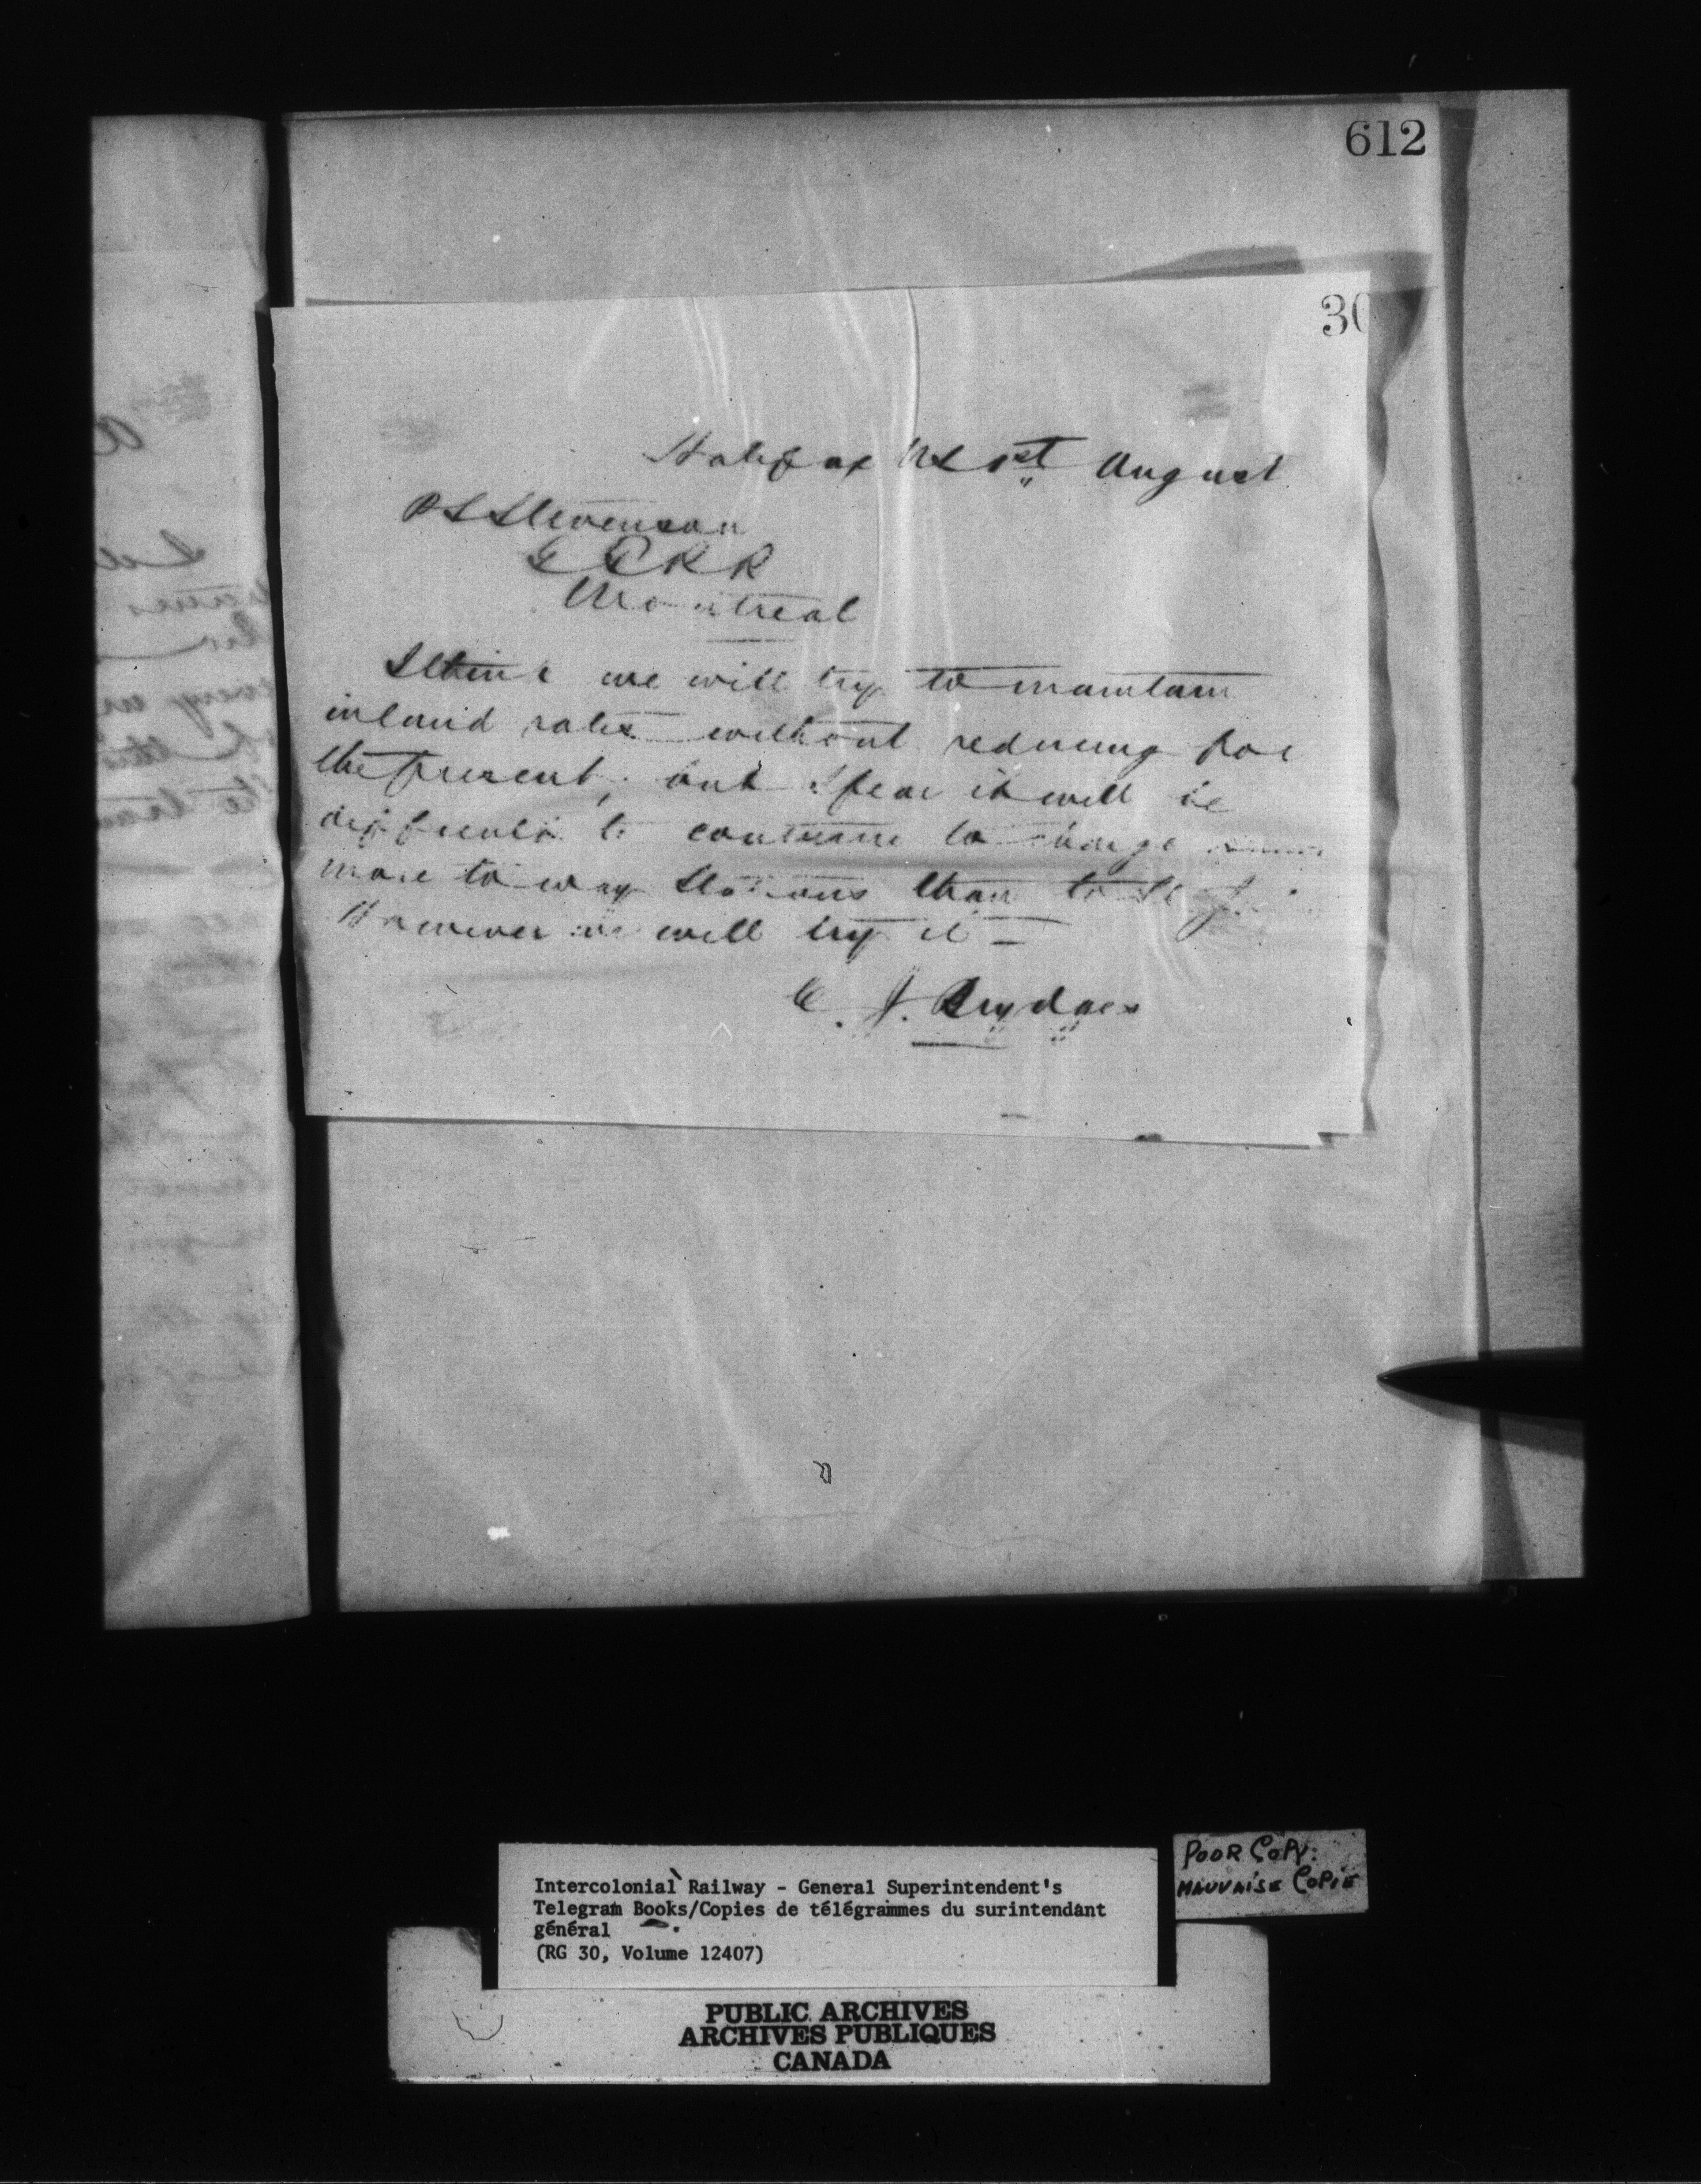 612
30
Halifax NS 1st August
P S Stevenson
G T R R
Montreal
I think we will try to maintain
inland rates without reducing for
the present, but I fear it will be
difficult to continue to charge
more to way stations than to St
However we will try it —
C. J. Brydges
Intercolonial Railway - General Superintendent's
Telegram Books/Copies de télégrammes du surintendant
général
(RG 30, Volume 12407)
POOR COPY.
MAUVAISE COPIE
PUBLIC ARCHIVES
ARCHIVES PUBLIQUES
CANADA